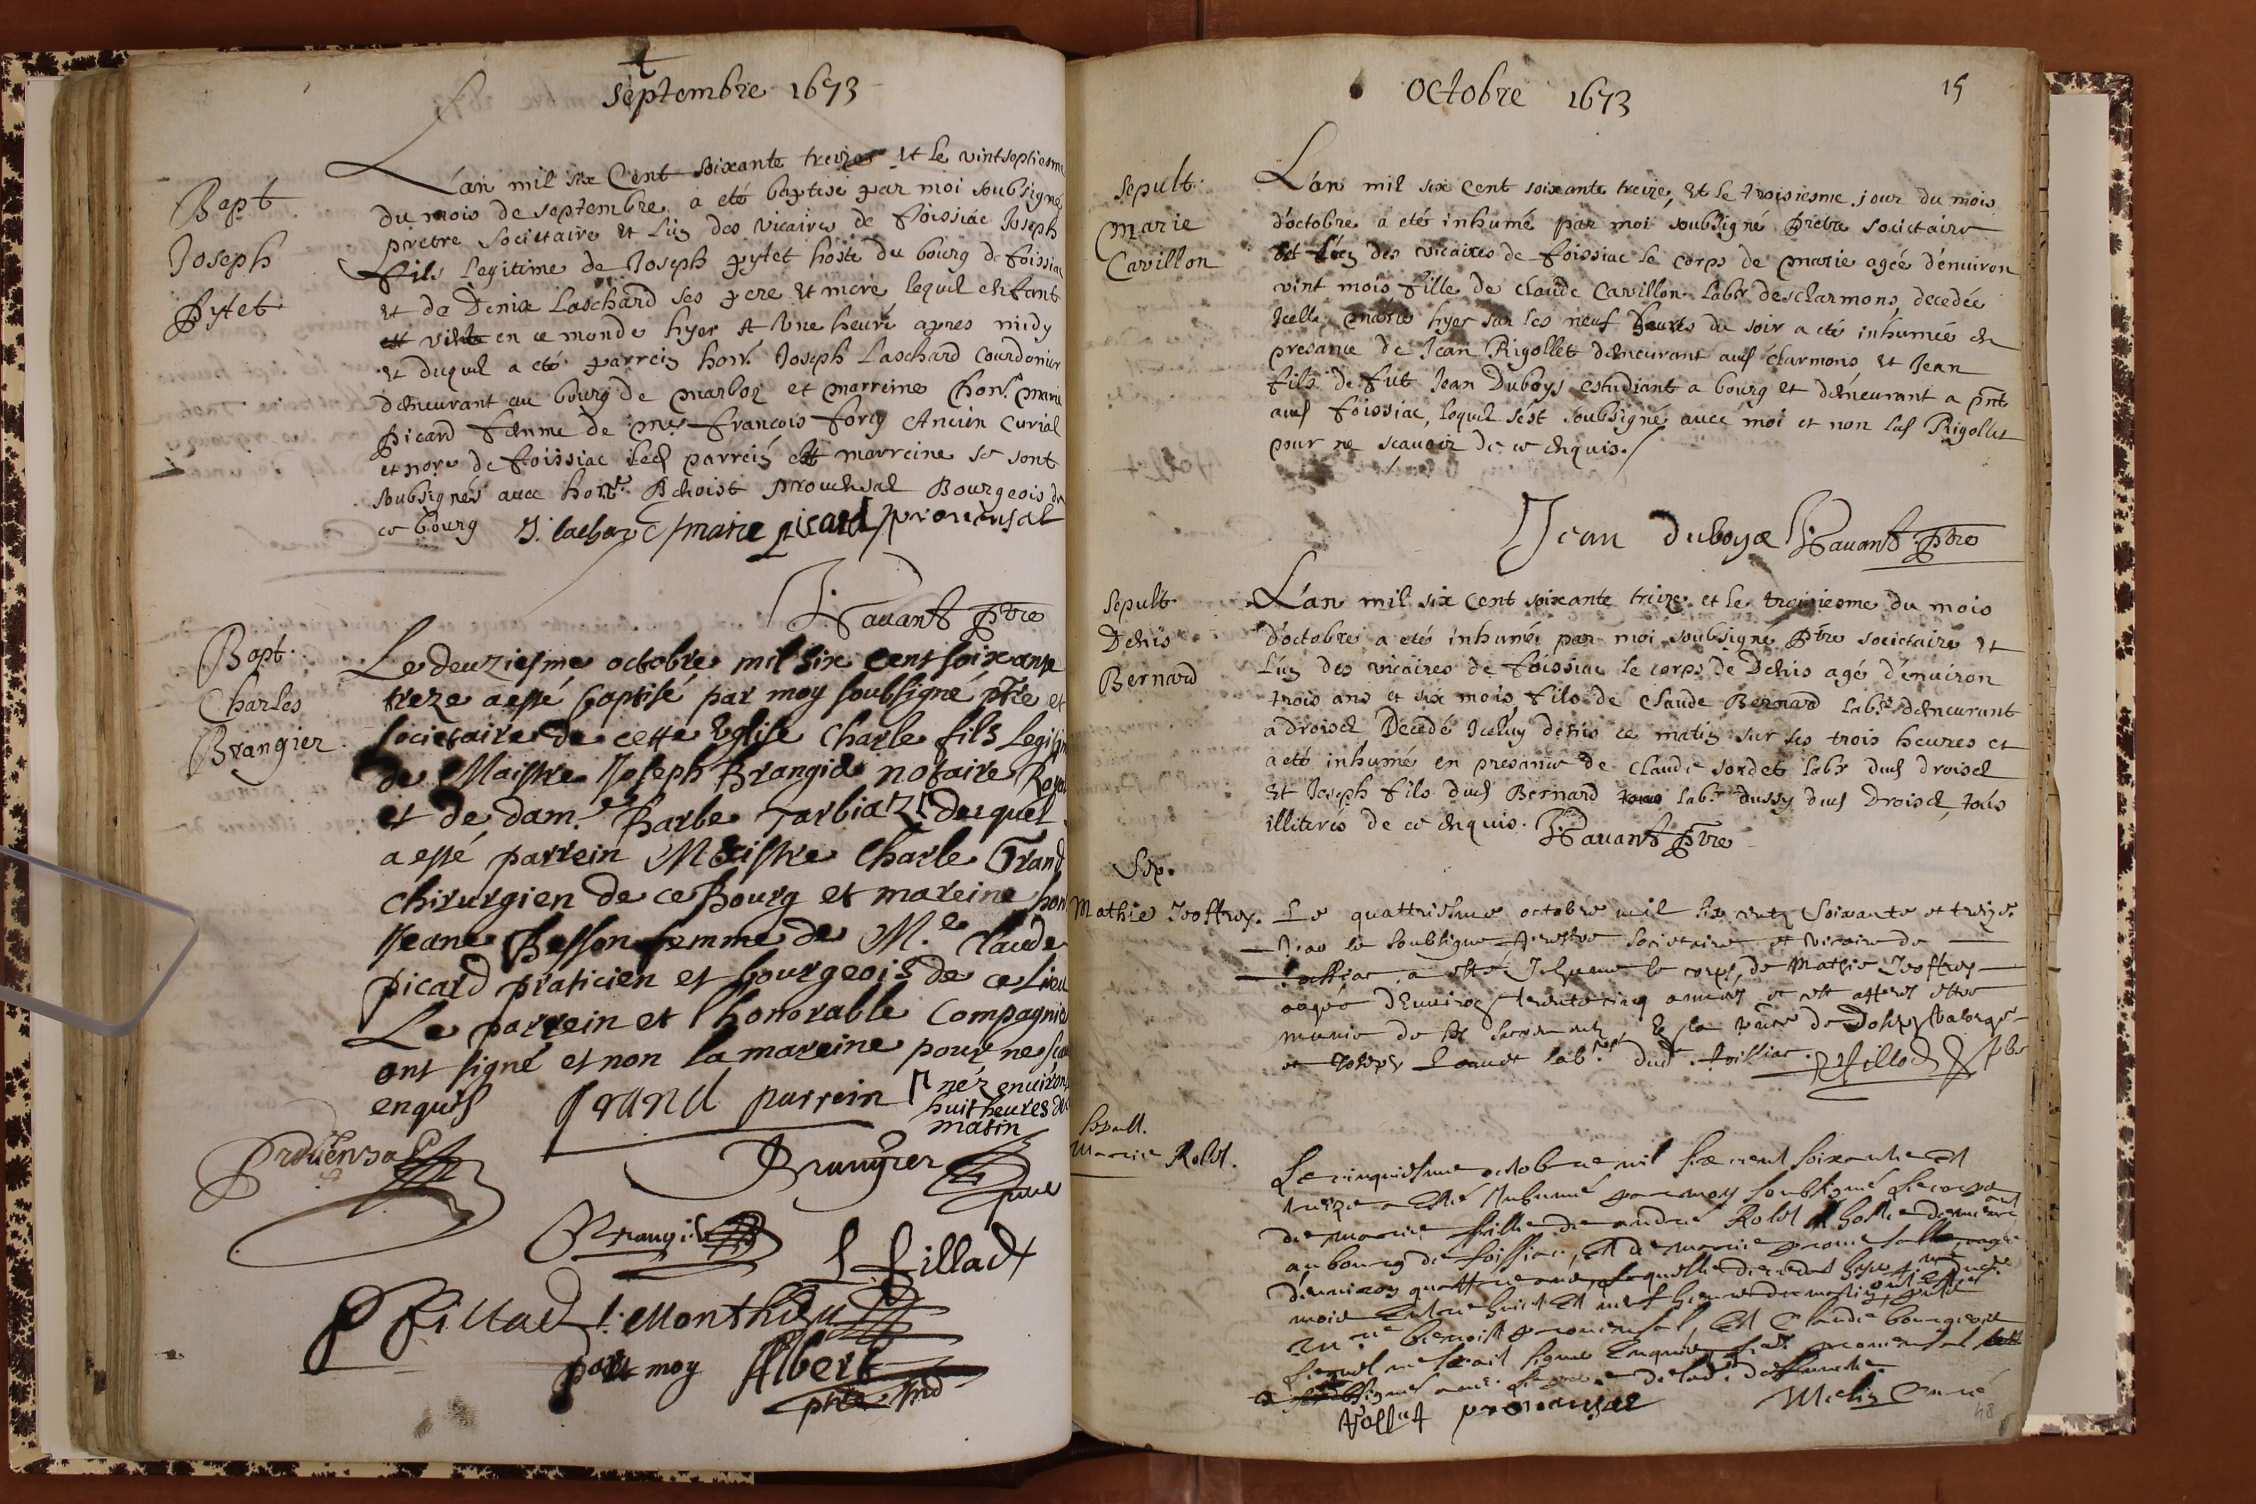 Septembre 1673
Bapt
Joseph
Pytet
L'an mil six Cent soixante treize et le vintseptiesme
du mois de septembre a eté baptise par moi soubsigné
pretre societaire et l'un des vicaires de foissiac Joseph
fils legitime de Joseph pytet hoste du bourg de foissiac
et de Denise Laschard ses pere et mere lequel enfant
en ce monde hyer A Une heure apres midy
et duquel a eté parrein hon. Joseph Laschard Courdonier
demeurant au bourg de marboz et marreine hon. marie
picard femme de me francois forey Ancien Curial
et nore de foissiac led parrein et marreine se sont
soubsignés avec hon. Benoist prouensal Bourgeois de
ce bourg J. laschard marie picard prouensal
Ravant Ptre
Bapt.
Charles
Brangier
Le deuziesme octobre mil six cent soixante
treze a esté baptisé par moy soubsigné, ptre et
societaire de cette Eglise Charle fils Legitime
de Maistre Joseph Brangié notaire Royal
et de dam.lle Barbe Tarbia duquel
a esté parrein Maistre Charle Grand
chirurgien de ce Bourg et mareine hon
Jeane Besson femme de M.e Claude
picard praticien et bourgeois de ce Lieu
Le parrein et l'honorable Compagnie
ont signé et non la mareine pour ne
enquis Grand parrein néz environ
huit heures du
matin
Prouensal
Brangier
Brangier
Fillad
P Fillad J. Monthieu
pour moy Albert
ptre
Octobre 1673
15
Sepult.
Marie
Cavillon
L'an mil six cent soixante treize, et le troisiesme jour du mois
d'octobre a eté inhumé par moi soubsigné pretre societaire
et l'un des vicaires de foissiac le corps de marie agée d'enuiron
vint mois fille de claude Cavillon labr descharmons decedée
Icelle marie hyer sur les neuf heures du soir a eté inhumée en
presance de Jean Rigollet demeurant aud charmons et Jean
fils de fut Jean Duboys estudiant a bourg et demeurant a pnt
aud foissiac, lequel s'est soubsigné avec moi et non led Rigollet
pour ne scauoir de ce enquis.
Jean duboys Ravant Ptre
Sepult
Denis
Bernard
L'an mil six cent soixante treize et le troisiesme du mois
d'octobre a eté inhumé par moi soubsigné Ptre societaire et
l'un des vicaires de foissiac le corps de Denis agé d'enuiron
trois ans et six mois fils de Claude Bernard labr demeurant
a droisel Decedé Iceluy denis ce matin sur les trois heures et
a eté inhumé en presance de claude sordet labr dud droisel
et Joseph fils dud Bernard labr aussy dud Droisel, tous
illiterés de ce enquis. Ravant Ptre
Sep.
Mathie Ieoffroy.
Le quattriesme octobre mil six centz Soixante et treize
par le soubsigné prestre societaire et vicaire de
foissiac a esté Inhumé le corps de Mathie Ieoffroy
aagée d'Enuiron trente cinq années et est apres estre
munie de ses sacrements En la pnce de
et Joseph labr. dud foissiac. Fillod pbr
Sepult.
Marie Rolet.
Le cinquiesme octobre mil six cent soixante Et
treize a Esté Inhumé par moy soubsigné Le corps
de marie fille de André Rolet hoste demeurant
au bourg de foissiac, Et de marie prouensalle, agée
d'enuiron quattre ans, laquelle deceda hyer
mois Entre huict Et neuf heures du matin,
benoist prouensal, Et Claude bourgeois
Lequel ne scait signer Enquis, prouensal
soubsigné avec Le pere de lad. deffuncte.
Rollet prouensal Melin Curé
48